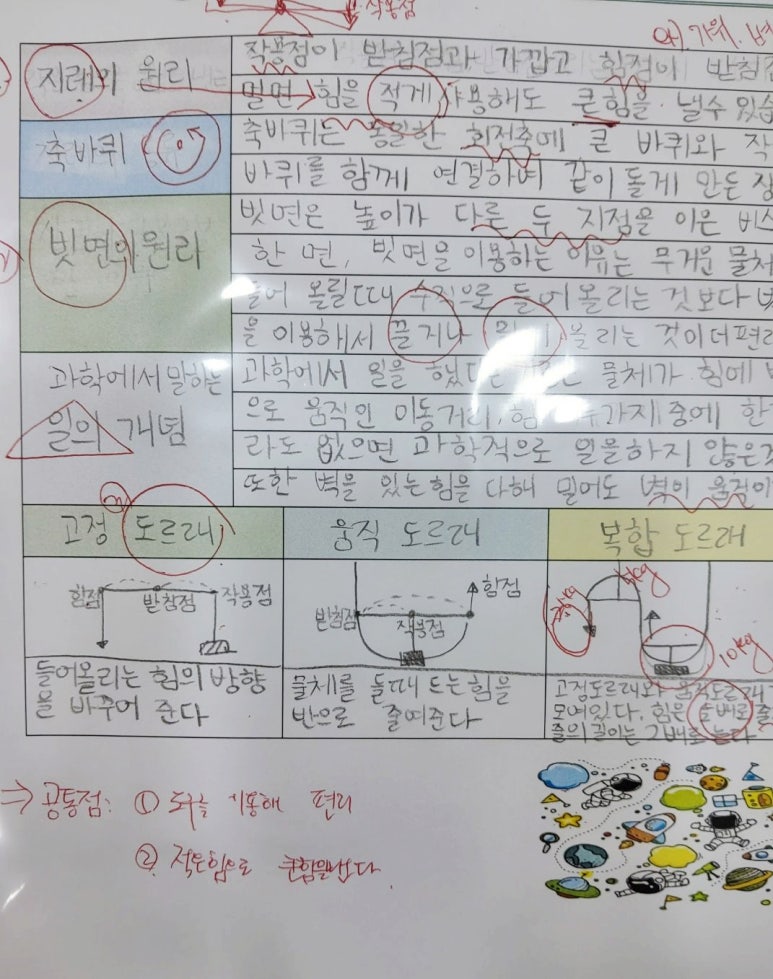 작용점
예) 가위,
지레의 원리
작용점이 받침점과 가깝고 힘점이 받침점
밀면 힘을 적게 사용해도 큰힘을 낼수 있습
축바퀴
축바퀴는 동일한 회전축에 큰 바퀴와 작
바퀴를 함께 연결하여 같이 돌게 만든 장
빗면의 원리
빗면은 높이가 다른 두 지점을 이은 비스
한 면, 빗면을 이용하는 이유는 무거운 물체
들어 올릴때 수직으로 들어 올리는 것보다
을 이용해서 끌거나 올리는 것이 더 편리
과학에서 말하는
일의 개념
과학에서 일을 했다는 물체가 힘에
으로 움직인 이동거리, 힘 가지 중에 한
라도 없으면 과학적으로 일을하지 않은것
또한 벽을 있는 힘을 다해 밀어도 벽이 움직이
고정 도르래
움직 도르래
복합 도르래
힘점
받침점
작용점
받침점
작용점
힘점
10kg
들어올리는 힘의 방향
을 바꾸어 준다
물체를 들때 드는 힘을
반으로 줄여준다
고정도르래와 움직도르래
모여있다. 힘은
줄의 길이는 2배로 는다
⇒ 공통점: ① 도구를 이용해 편리
② 적은힘으로 큰힘을낸다